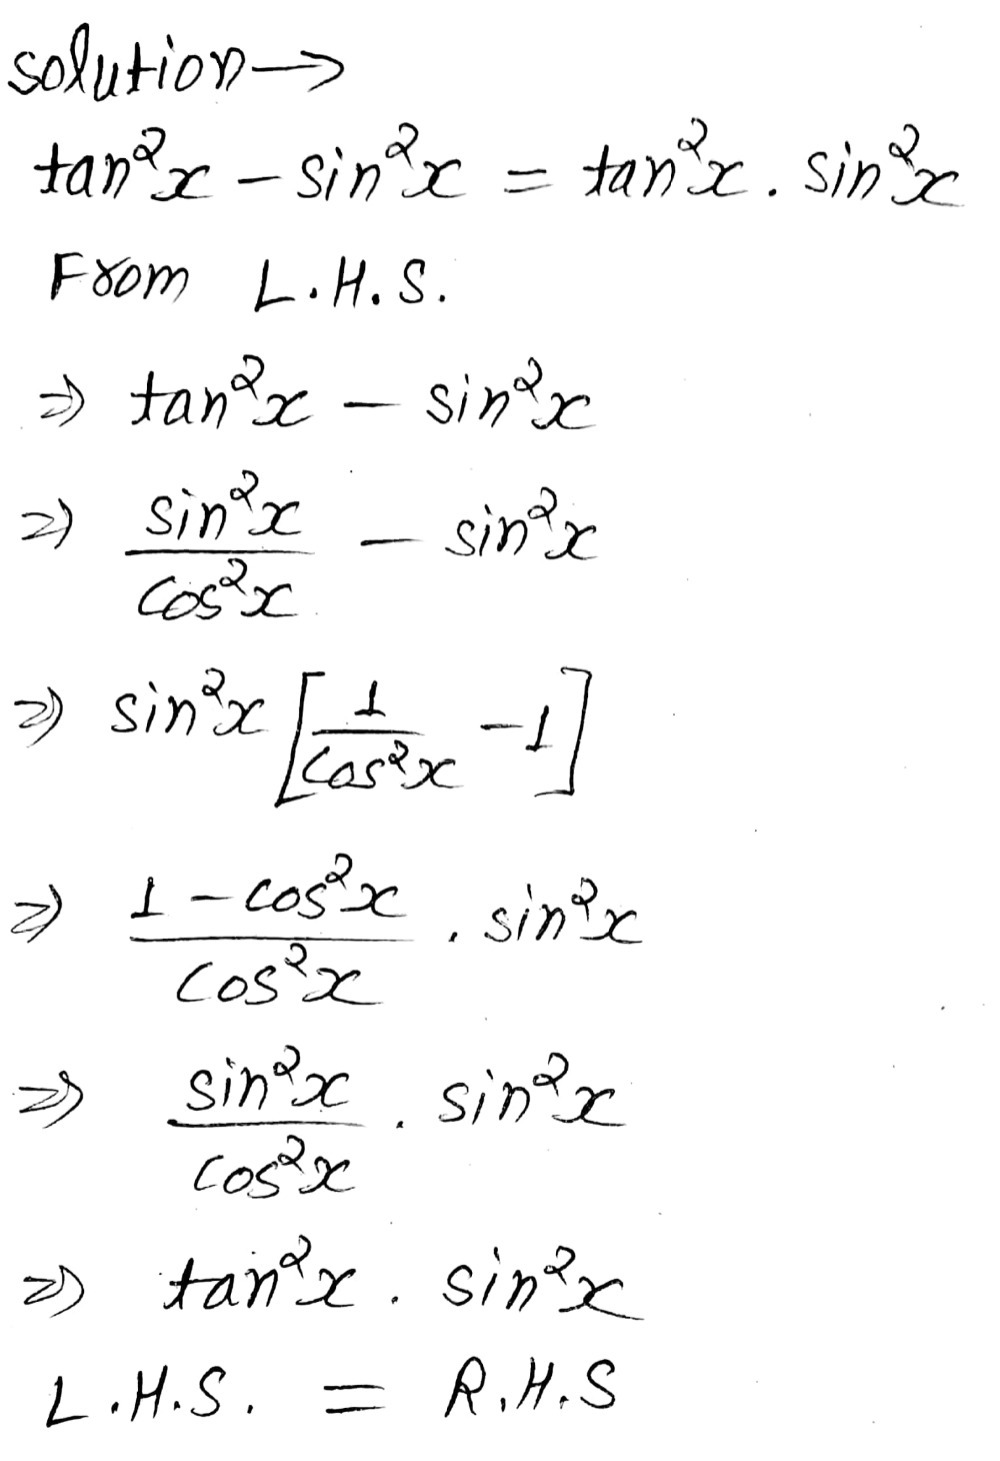 solution→
tan²x - sin²x = tan²x . sin²x
From L.H.S.
⇒ tan²x - sin²x
⇒ sin²x/cos²x - sin²x
⇒ sin²x [1/cos²x - 1]
⇒ 1 - cos²x/cos²x . sin²x
⇒ sin²x/cos²x . sin²x
⇒ tan²x . sin²x
L.H.S. = R.H.S